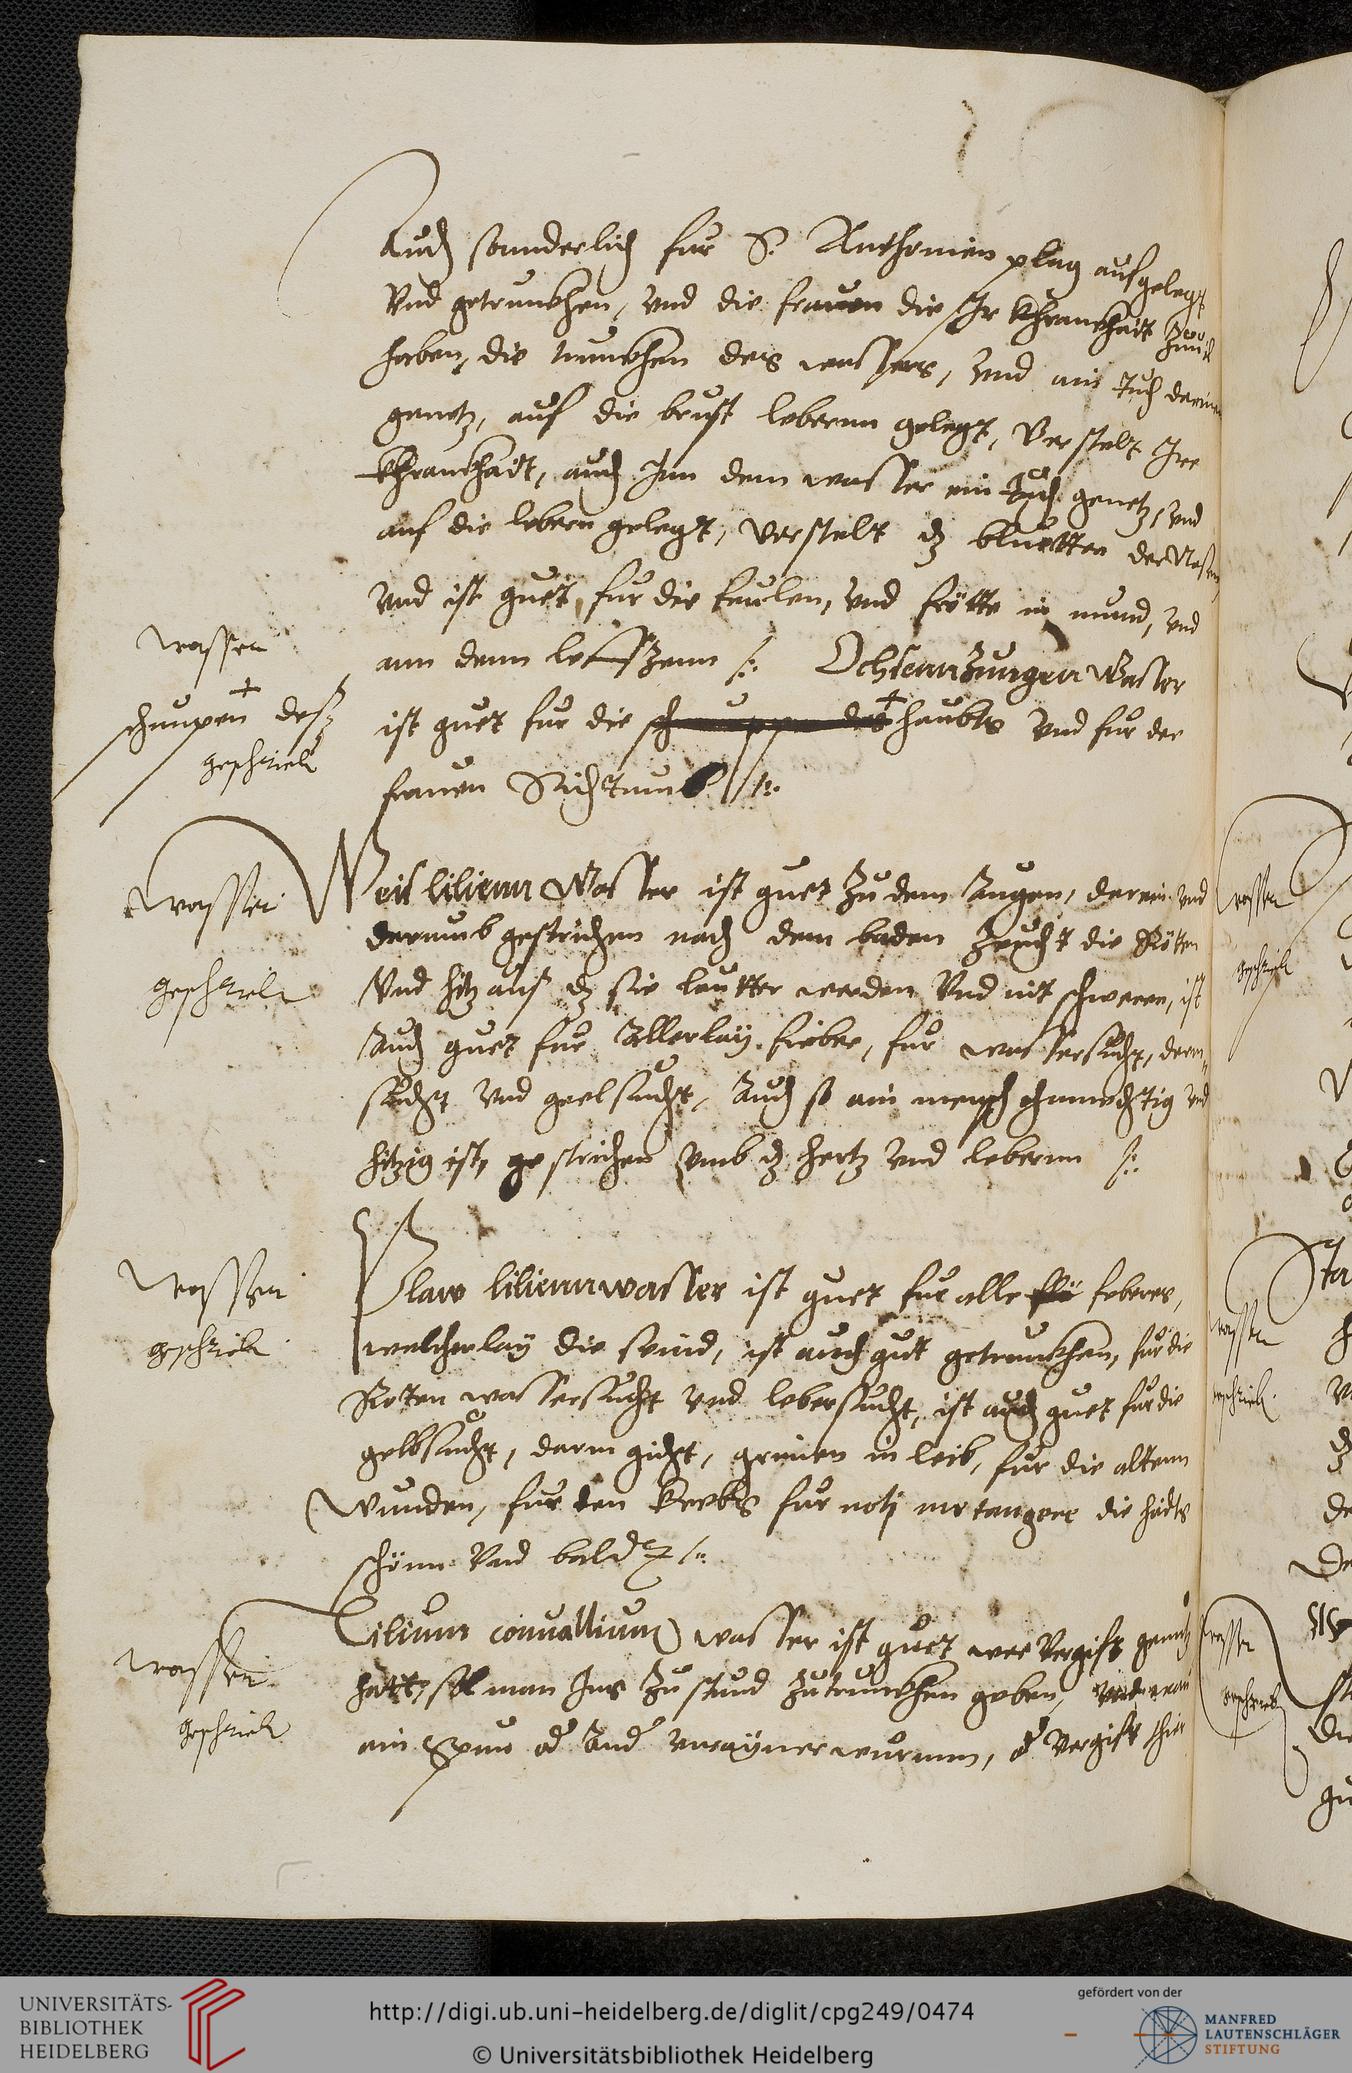 Auch sonnderlich fur S. Anthonien plag aufgelegt
Vnd getrunckhen, vnd die frauen die Ir khranckhait Zuuil
haben, die trunckhen des wassers, Vnd ain tuch darinn
genetz, auf die brust lebernn gelegt, Verstelt Ire
khranckhait, auch Inn dem wasser ein tuch genetz, vnd
auf die lebern gelegt, verstelt dz bluetten der Nasen,
vnd ist guet fur die feulen, vnd frötte im mund, vnd
ann denn lefftzenn /: Ochsennzungen Wasser
ist guet fur die schnuppen des haubts Vnd fur der
frauen Sichtumb /:
wasser
schnupen desz
geschrieben
Weis lilienn Wasser ist guet Zu dem Augen, darein vnd
darumb gestrichen nach dem baden Zeucht die Rötten
Vnd hitz auß dz sie lautter werden Vnd nit schweren, ist
Auch guet fur Allerlaÿ fieber, fur wassersucht, darm=
sucht Vnd geelsucht, Auch so ain mensch ohnmechtig vnd
hitzig ist, gestrichen vmb dz hertz vnd lebernn /:
wasser
geschrieben
Blaw lilienn wasser ist guet fur alle febres,
welcherlaÿ die seind, ist auch gut getrunckhen, fur die
Roten wassersucht vnd lebersucht, ist auch guet fur die
gelbsucht, darm gicht, grimen im leib, fur die altenn
Wunden, fur den krebs fur noli me tangere die hailts
schönn Vnd bald /:
wasser
geschrieben
Lilium conuallium wasser ist guet wer Vergift genutz
hatt, sol man Ims Zu stund Zutrunckhen geben,
ein Spin od And vnraÿner wurmm, od Vergift thier
wasser
geschrieben
UNIVERSITÄTS-
BIBLIOTHEK
HEIDELBERG
http://digi.ub.uni-heidelberg.de/diglit/cpg249/0474
© Universitätsbibliothek Heidelberg
gefördert von der
MANFRED
LAUTENSCHLÄGER
STIFTUNG